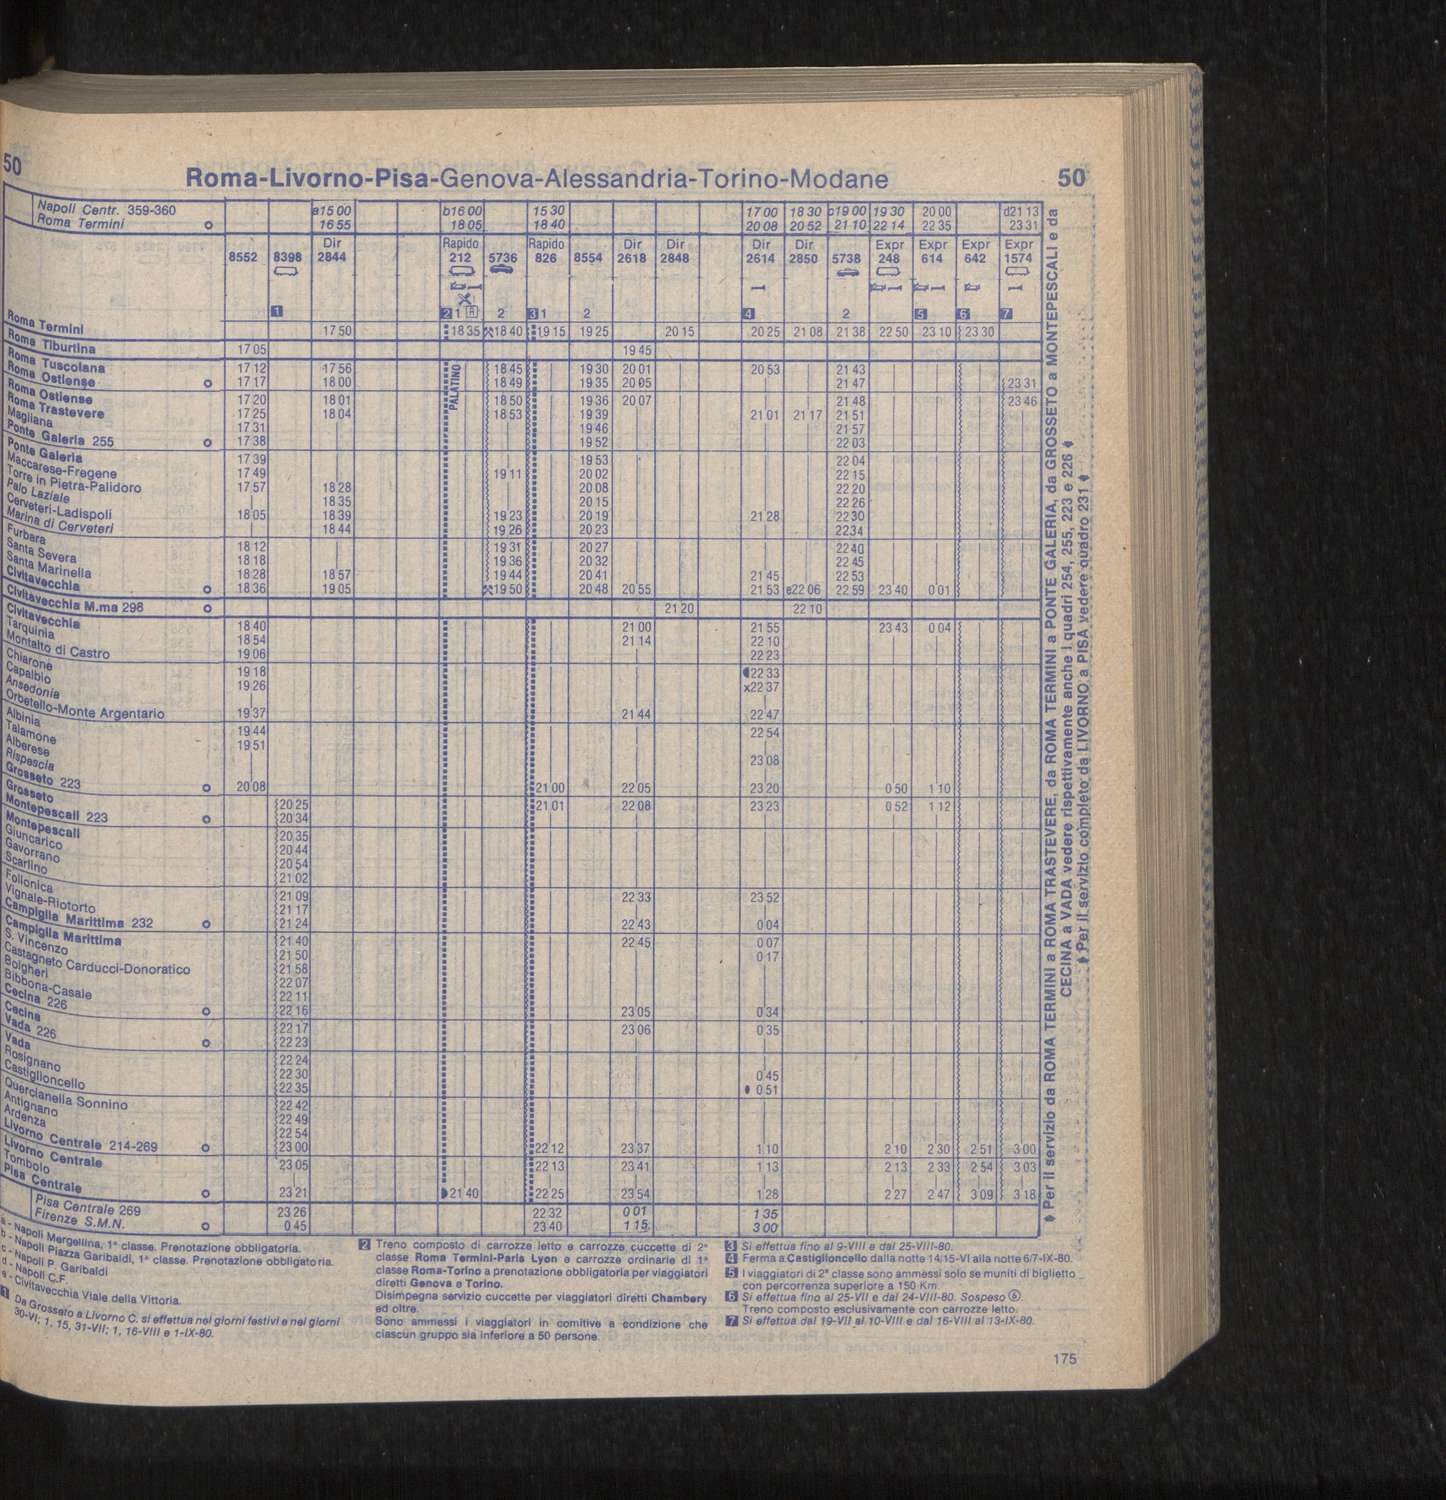 50 Roma-Livorno-Pisa-Genova-Alessandria-Torino-Modane 50
Napoli Centr. 359-360 a15 00 b16 00 15 30 17 00 18 30 c19 00 19 30 20 00 d21 13
Roma Termini 16 55 18 05 18 40 20 08 20 52 21 10 22 14 22 35 23 31
Dir Rapido Rapido Dir Dir Dir Dir Expr Expr Expr Expr
8552 8398 2844 212 5736 826 8554 2618 2848 2614 2850 5738 248 614 642 1574
1 2 1 R 2 3 1 2 4 2 5 6 7
Roma Termini 17 50 18 35 18 40 19 15 19 25 20 15 20 25 21 08 21 38 22 50 23 10 23 30
Roma Tiburtina 17 05 19 45
Roma Tuscolana 17 12 17 56 PALATINO 18 45 19 30 20 01 20 53 21 43
Roma Ostiense 17 17 18 00 18 49 19 35 20 05 21 47 23 31
Roma Ostiense 17 20 18 01 18 50 19 36 20 07 21 48 23 46
Roma Trastevere 17 25 18 04 18 53 19 39 21 01 21 17 21 51
Magliana 17 31 19 46 21 57
Ponte Galeria 255 17 38 19 52 22 03
Ponte Galeria 17 39 19 53 22 04
Maccarese-Fregene 17 49 19 11 20 02 22 15
Torre in Pietra-Palidoro 17 57 18 28 20 08 22 20
Palo Laziale 18 35 20 15 22 26
Cerveteri-Ladispoli 18 05 18 39 19 23 20 19 21 28 22 30
Marina di Cerveteri 18 44 19 26 20 23 22 34
Furbara 18 12 19 31 20 27 22 40
Santa Severa 18 18 19 36 20 32 22 45
Santa Marinella 18 28 18 57 19 44 20 41 21 45 22 53
Civitavecchia 18 36 19 05 19 50 20 48 20 55 21 53 e22 06 22 59 23 40 0 01
Civitavecchia M.ma 298 21 20 22 10
Civitavecchia 18 40 21 00 21 55 23 43 0 04
Tarquinia 18 54 21 14 22 10
Montalto di Castro 19 06 22 23
Chiarone 19 18 22 33
Capalbio 19 26 x22 37
Ansedonia
Orbetello-Monte Argentario 19 37 21 44 22 47
Albinia 19 44 22 54
Talamone 19 51
Alberese 23 08
Rispescia
Grosseto 223 20 08 21 00 22 05 23 20 0 50 1 10
Grosseto 20 25 21 01 22 08 23 23 0 52 1 12
Montepescali 223 20 34
Montepescali 20 35
Giuncarico 20 44
Gavorrano 20 54
Scarlino 21 02
Follonica 21 09 22 33 23 52
Vignale-Riotorto 21 17
Campiglia Marittima 232 21 24 22 43 0 04
Campiglia Marittima 21 40 22 45 0 07
S. Vincenzo 21 50 0 17
Castagneto Carducci-Donoratico 21 58
Bolgheri 22 07
Bibbona-Casale 22 11
Cecina 226 22 16 23 05 0 34
Cecina 22 17 23 06 0 35
Vada 226 22 23
Vada 22 24
Rosignano 22 30 0 45
Castiglioncello 22 35 0 51
Quercianella Sonnino 22 42
Antignano 22 49
Ardenza 22 54
Livorno Centrale 214-269 23 00 22 12 23 37 1 10 2 10 2 30 2 51 3 00
Livorno Centrale 23 05 22 13 23 41 1 13 2 13 2 33 2 54 3 03
Tombolo
Pisa Centrale 23 21 21 40 22 25 23 54 1 28 2 27 2 47 3 09 3 18
Pisa Centrale 269 23 26 22 32 0 01 1 35
Firenze S.M.N. 0 45 23 40 1 15 3 00
a - Napoli Mergellina, 1ª classe. Prenotazione obbligatoria.
b - Napoli Piazza Garibaldi, 1ª classe. Prenotazione obbligatoria.
c - Napoli P. Garibaldi
d - Napoli C.F.
e - Civitavecchia Viale della Vittoria.
1 Da Grosseto a Livorno C. si effettua nei giorni festivi e nei giorni
30-VI; 1, 15, 31-VII; 1, 16-VIII e 1-IX-80.
2 Treno composto di carrozze letto e carrozze cuccette di 2ª
classe Roma Termini-Paris Lyon e carrozze ordinarie di 1ª
classe Roma-Torino a prenotazione obbligatoria per viaggiatori
diretti Genova e Torino.
Disimpegna servizio cuccette per viaggiatori diretti Chambery
ed oltre.
Sono ammessi i viaggiatori in comitive a condizione che
ciascun gruppo sia inferiore a 50 persone.
3 Si effettua fino al 9-VIII e dal 25-VIII-80.
4 Ferma a Castiglioncello dalla notte 14/15-VI alla notte 6/7-IX-80.
5 I viaggiatori di 2ª classe sono ammessi solo se muniti di biglietto
con percorrenza superiore a 150 Km.
6 Si effettua fino al 25-VII e dal 24-VIII-80. Sospeso ⑥.
Treno composto esclusivamente con carrozze letto.
7 Si effettua dal 19-VII al 10-VIII e dal 16-VIII al 13-IX-80.
Per il servizio da ROMA TERMINI a ROMA TRASTEVERE, da ROMA TERMINI a PONTE GALERIA, da GROSSETO a MONTEPESCALI e da
CECINA a VADA vedere rispettivamente anche i quadri 254, 255, 223 e 226
Per il servizio completo da LIVORNO a PISA vedere quadro 231
175